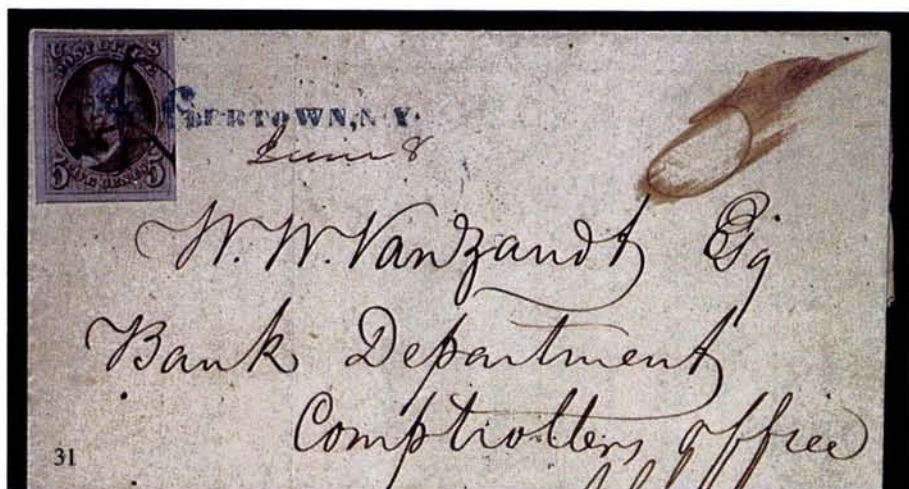 POST OFFICE
5 FIVE CENTS 5
N.Y.
June 8
W. W. Vandzandt Esq
Bank Department
Comptrollers office
31